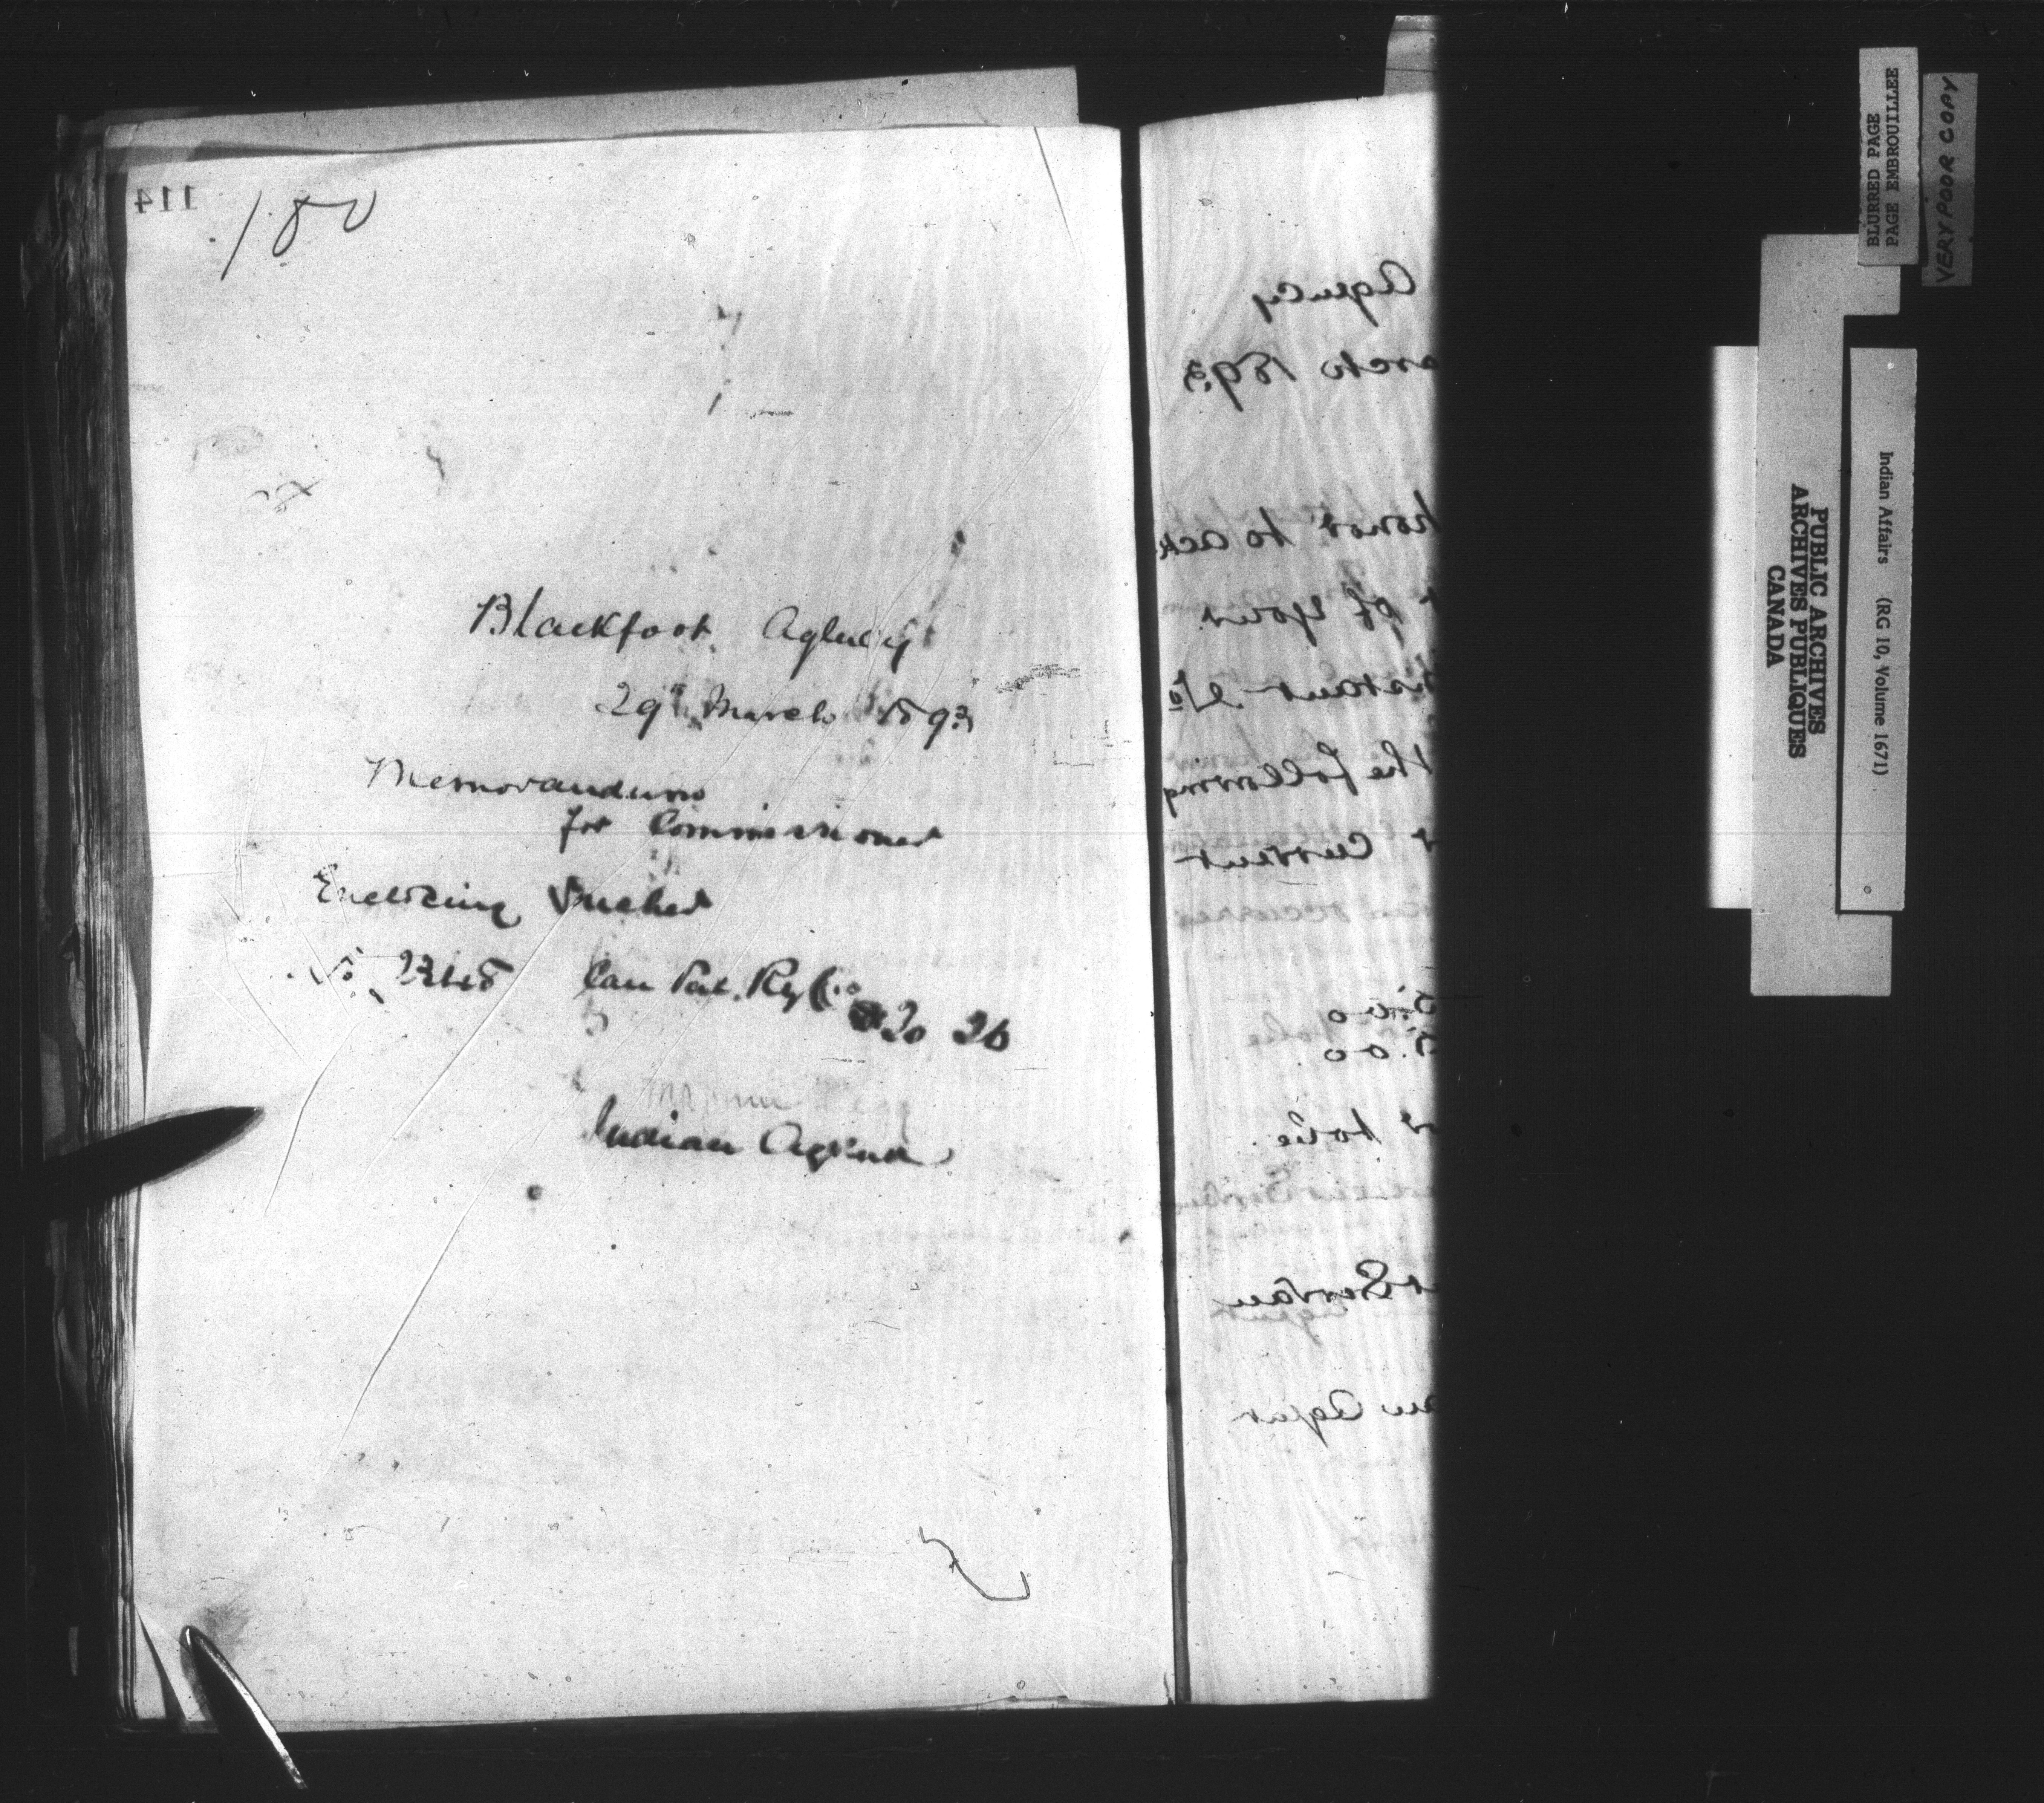 114
180
Blackfoot Agency
29th March 1893
Memorandum
for Commissioner
Enclosing Vucher
No Can Pac. Ry Co
20 26
Indian Agent
Agency
arch 1893
honor to ack
of your
instant No
the following
current
5.00
5.00
Agent
BLURRED PAGE
PAGE EMBROUILLEE
VERY POOR COPY
PUBLIC ARCHIVES
ARCHIVES PUBLIQUES
CANADA
Indian Affairs (RG 10, Volume 1671)